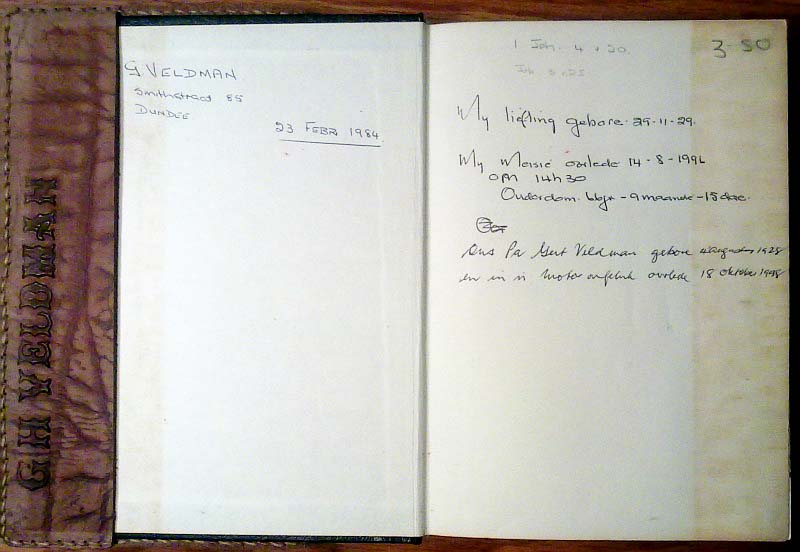 GH VELDMAN
G. VELDMAN
Smithstraat 85
DUNDEE
23 FEBR 1984
1 Joh. 4 v 20.
3-50
My liefling gebore 29-11-29.
My Meisie oorlede 14-8-1996
om 14h30
Ouderdom. 66jr - 9 maande - 15 dae.
Ons Pa Gert Veldman gebore 4 Augustus 1928
en in 'n motor ongeluk oorlede 18 Oktober 1998